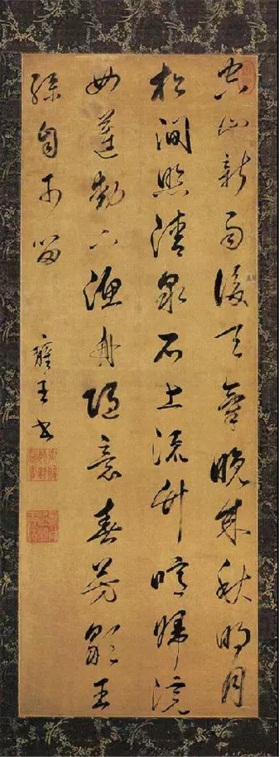 空山新雨後天氣晚來秋明月
松澗照清泉石上流竹喧歸浣
女蓮動下漁舟隨意春芳歇王
孫自可留
雍王書